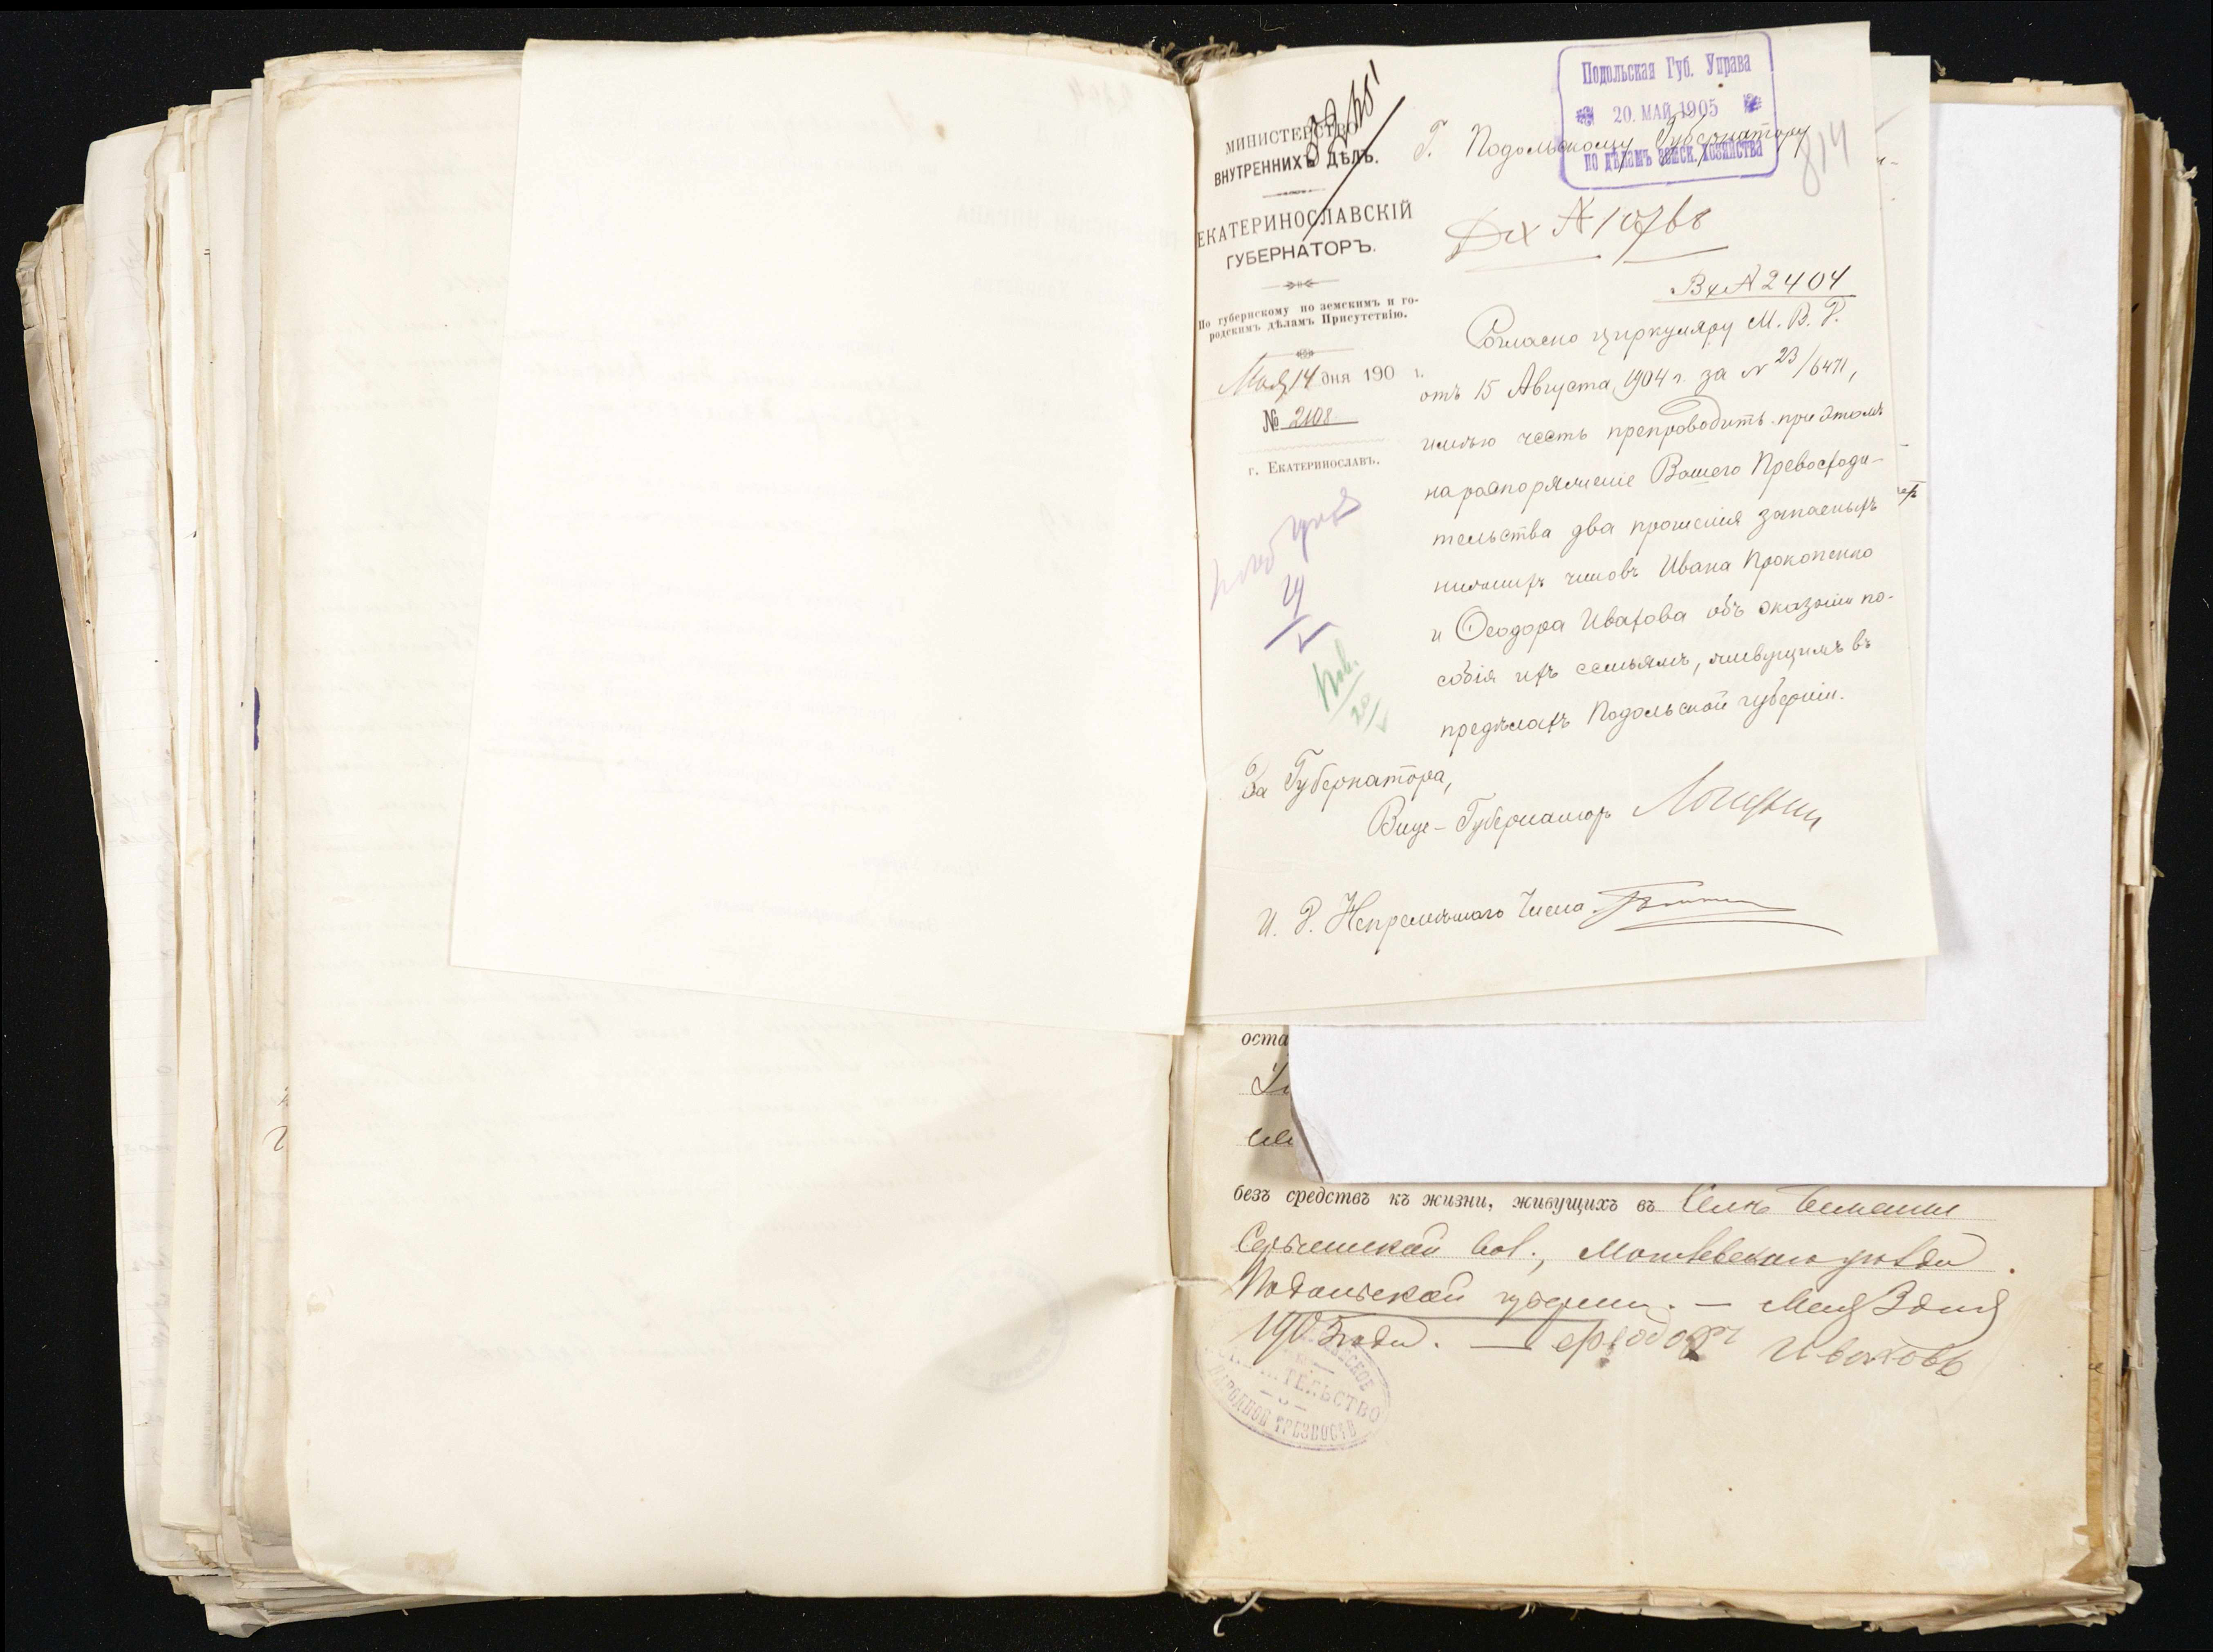 МИНИСТЕРСТВО
ВНУТРЕННИХЪ ДѢЛЪ.
ЕКАТЕРИНОСЛАВСКІЙ
ГУБЕРНАТОРЪ.
По губернскому по земскимъ и го-
родскимъ дѣламъ Присутствію.
Мая 14 дня 190 г.
№ 2108
г. Екатеринославъ.
Подольская Губ. Управа
20. МАЙ 1905
по дѣламъ земск. хозяйства
Г. Подольскому Губернатору
814
Вх № 2404
Согласно циркуляру М. В. Д.
отъ 15 Августа 1904 г. за № 23/6471,
имѣю честь препроводить при этомъ
на распоряженіе Вашего Превосходи-
тельства два прошенія запасныхъ
нижнихъ чиновъ Ивана Прокопенко
и Ѳеодора Ивахова объ оказаніи по-
собія ихъ семьямъ, живущимъ въ
предѣлахъ Подольской губерніи.
За Губернатора,
Вице-Губернаторъ
И. Д. Непремѣннаго Члена
оста
безъ средствъ къ жизни, живущихъ въ Селѣ
вол., Могилевскаго уѣзда
Подольской губерніи. — Мая 3 дня
1905 года. — Ѳеодоръ Иваховъ
НАРОДНОЙ ТРЕЗВОСТИ